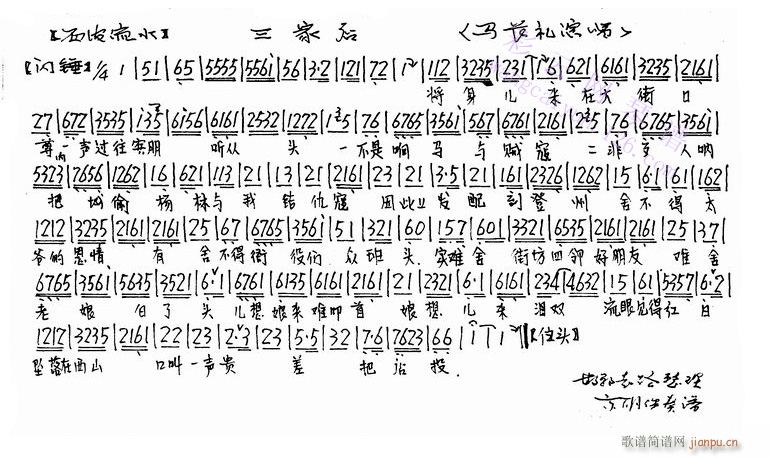 【西皮流水】 三家店 〈马长礼演唱〉
【闪锤】 1/4 1 | 51 | 65 | 5555 | 5561 | 56 | 3·2 | 121 | 72 | 1 | 112 | 3235 | 231 | 1 6 | 621 | 6161 | 3235 | 2161 |
将身儿来在大街口
27 | 672 | 3535 | 135 | 6156 | 6161 | 2532 | 1272 | 1 5 | 76 | 6765 | 3561 | 567 | 6761 | 2161 | 2 5 | 76 | 6765 | 3561 |
尊一声过往宾朋听从头一不是响马与贼寇二非是人呐
5323 | 7656 | 1262 | 16 | 621 | 113 | 21 | 13 | 21 | 2161 | 23 | 21 | 3·5 | 21 | 161 | 2326 | 1262 | 15 | 61 | 61 | 162
把城偷杨林与我结仇寇因此上发配到登州舍不得太
1212 | 3235 | 2161 | 2161 | 25 | 67 | 6765 | 3561 | 51 | 321 | 60 | 157 | 601 | 3321 | 6535 | 2161 | 2161 | 25 | 37
爷的恩情有舍不得衙役们众班头实难舍街坊四邻好朋友难舍
6765 | 3561 | 5635 | 3521 | 6·1 | 6761 | 6135 | 6161 | 2161 | 21 | 2321 | 6·1 | 6161 | 234 | 4632 | 15 | 61 | 5357 | 6·2
老娘白了头儿想娘来难叩首娘想儿来泪双流眼见得红日
1217 | 3235 | 2161 | 22 | 23 | 2·3 | 23 | 5·5 | 32 | 7·6 | 7623 | 66 | 1 | 1 | 【住头】
坠落在西山口叫一声贵差把店投.
歌谱简谱网 jianpu.cn